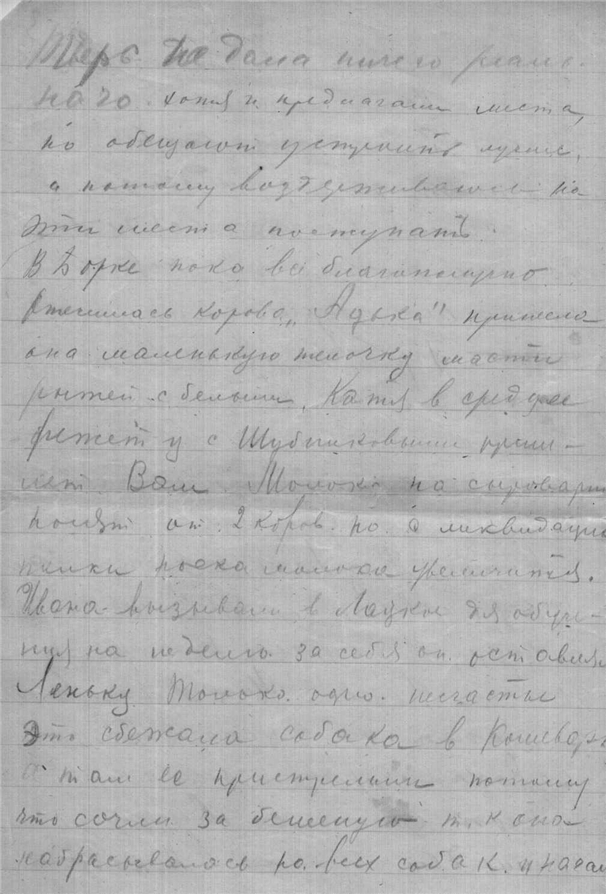 Тверь не дала ничего реаль-
ного. хотя и предлагали места,
но обещают устроить лучше,
а потому воздерживаюсь на
эти места поступать.
В Борке пока все благополучно
Отелилась корова „Адька" принесла
она маленькую телочку масти
рыжей с белым. Катя в среду ее
режет и с Шубниковыми приш-
лет Вам. Молоко на сыроварню
носят от 2 коров. но с ликвидацие
телки носка молока увеличится.
Ивана вызывали в Лацкое для обуче-
ния на неделю за себя он оставлял
Леньку Только одно несчастье
Это сбежала собака в
а там ее пристрелили потому
что сочли за бешеную т. к она
набрасывалась на всех собак. и